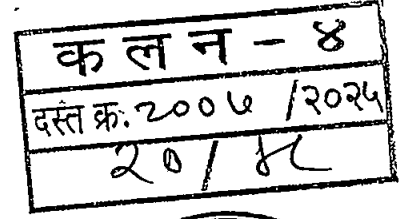 क ल न - ४
दस्त क्र. २००७ /२०२५
२० /